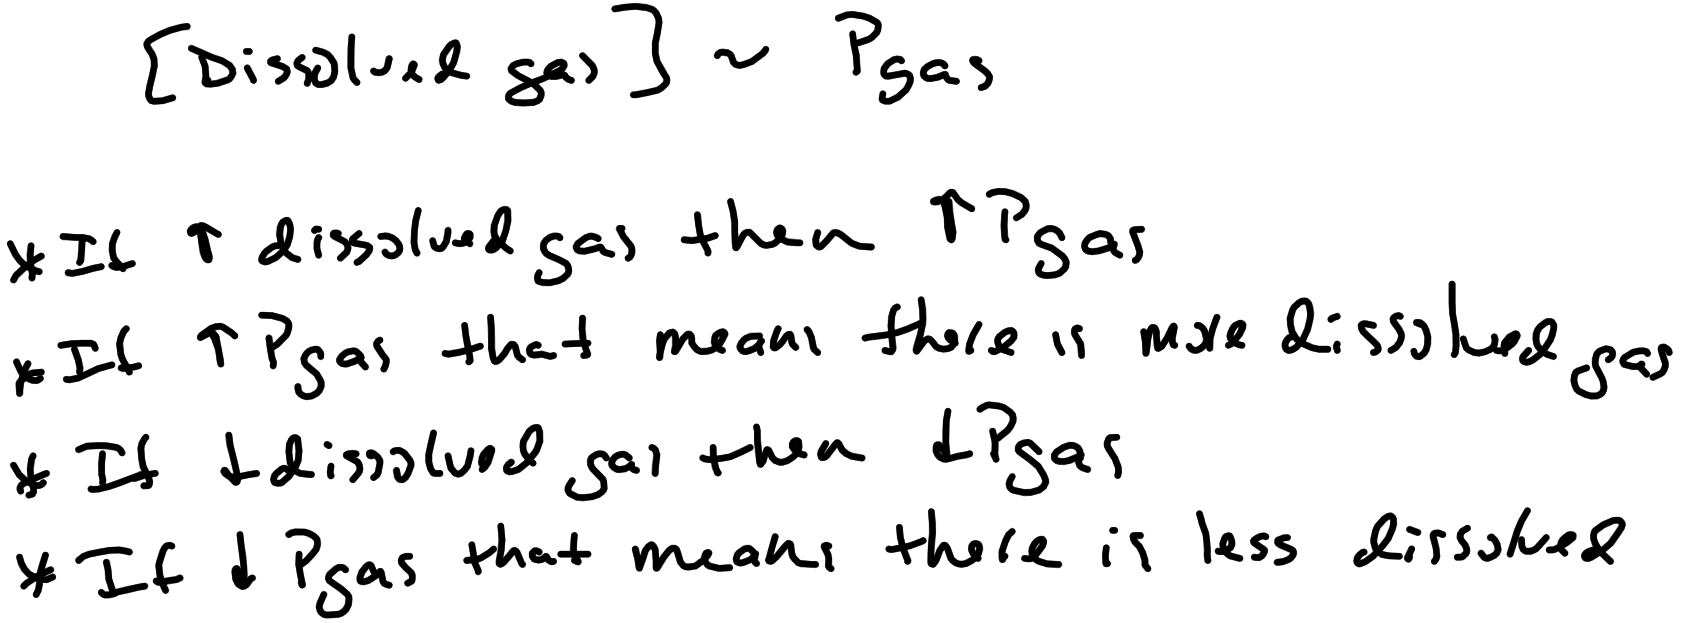 [Dissolved gas] ~ Pgas
* If ↑ dissolved gas then ↑Pgas
* If ↑ Pgas that means there is more dissolved gas
* If ↓dissolved gas then ↓Pgas
* If ↓ Pgas that means there is less dissolved